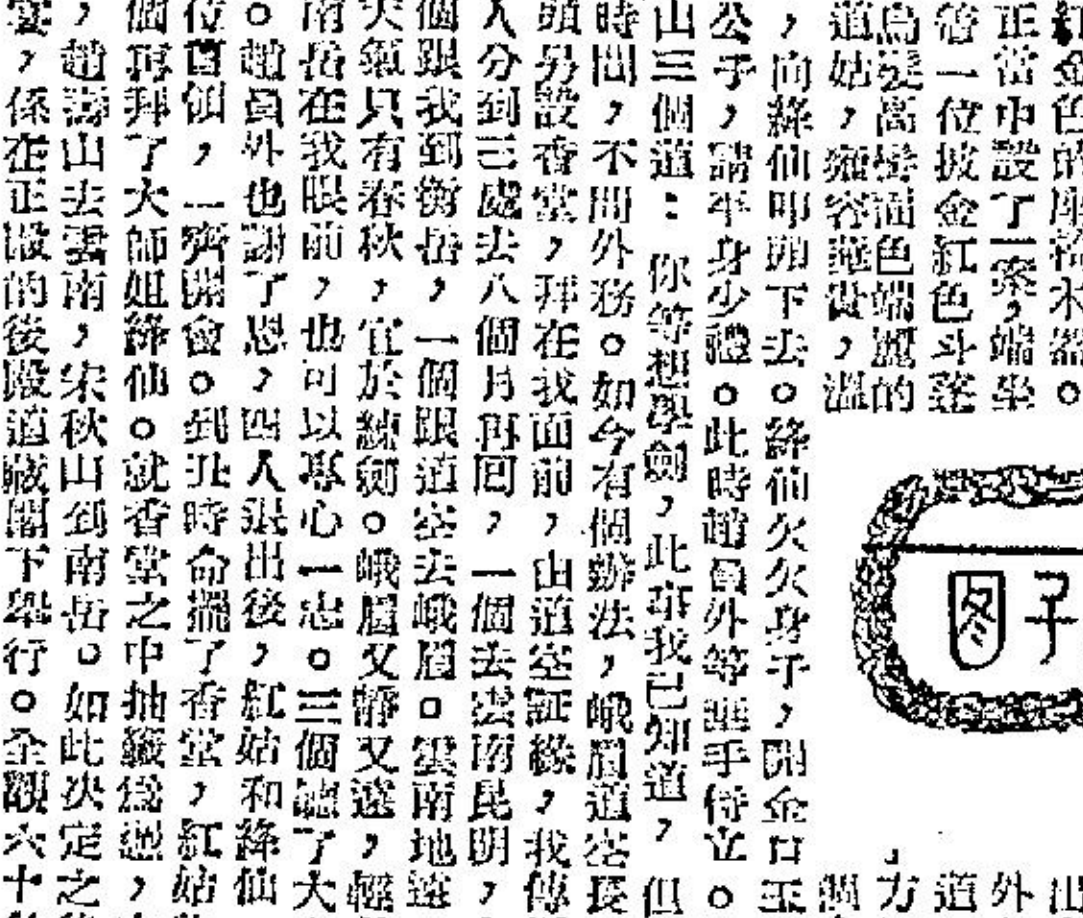 紅金色的座
正當中設了一案，端坐
着一位披金紅色斗蓬
烏髮高 面色端麗的
道姑， 容 貴，溫
，向絳仙叩頭下去。絳仙欠欠身子，開金口玉
公子，請平身少禮。此時趙員外等垂手侍立。
山三個道：你等想學劍，此事我已知道，但
時間，不問外務。如今有個辦法，峨眉道空長
頭另設香堂，拜在我面前，由道空証緣，我傳
人分到三處去八個月再回，一個去雲南昆明，
個跟我到衡岳，一個跟道空去峨眉。雲南地遠
天氣只有春秋，宜於練劍。峨眉又靜又遠，輕
南岳在我眼前，也可以專心一志。三個聽了大
。趙員外也謝了恩，四人退出後，紅姑和絳仙
位首領，一齊開會。到 時命擺了香堂，紅姑
個再拜了大師姐絳仙。就香堂之中抽籤為憑，
，趙 山去雲南，宋秋山到南岳。如此決定之
宴，係在正殿的後殿道藏閣下舉行。全觀六十
图子
個方道外出